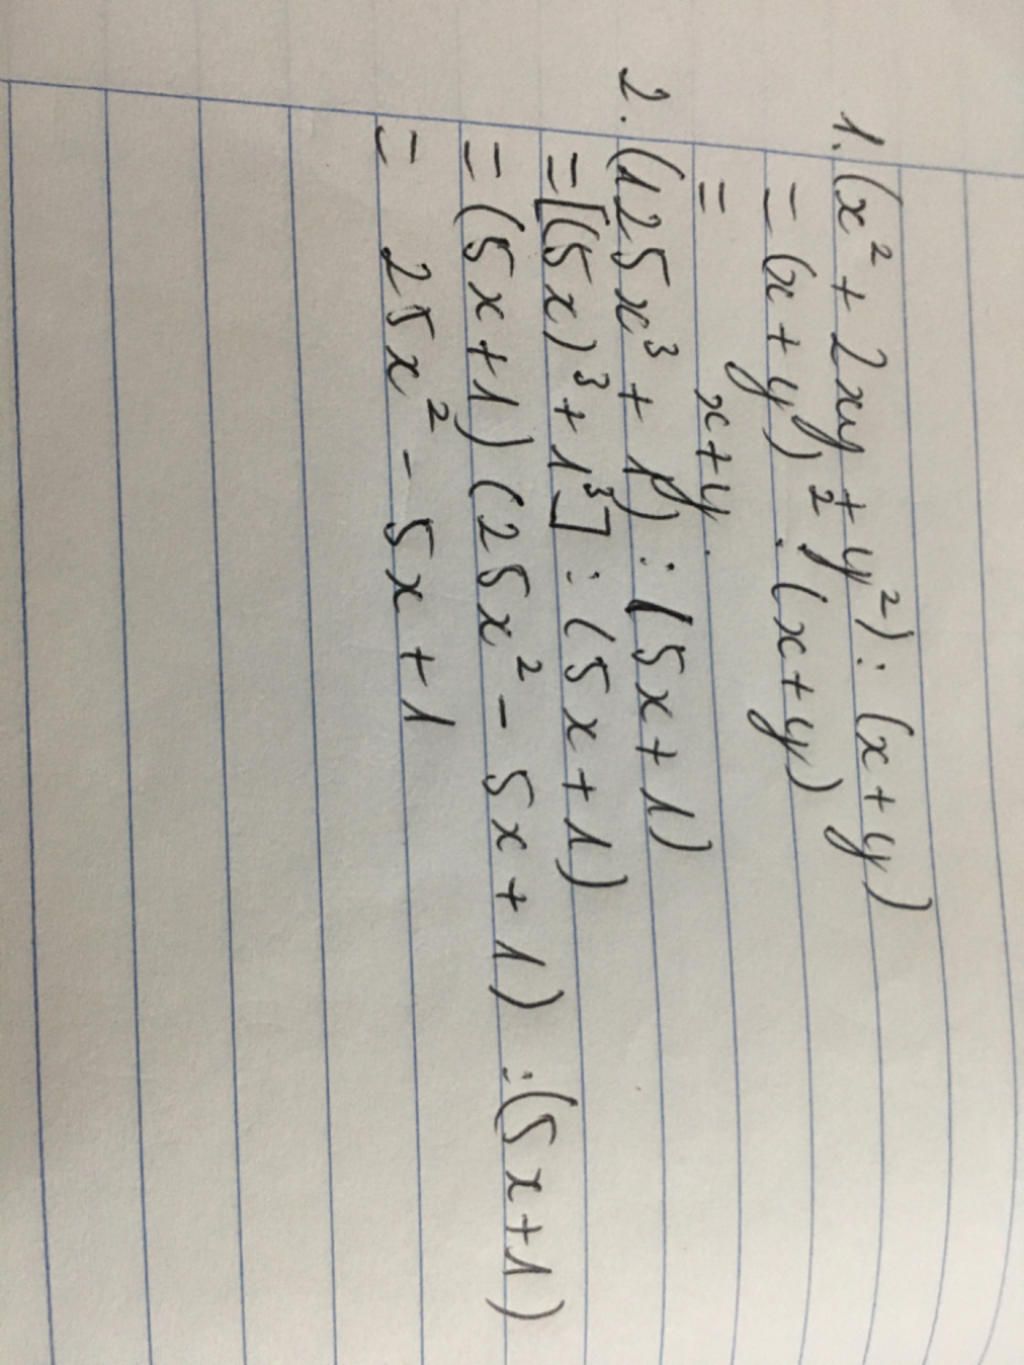 1. (x² + 2xy + y²) : (x + y)
= (x + y)² : (x + y)
= x + y.
2. (125x³ + 1) : (5x + 1)
= [(5x)³ + 1³] : (5x + 1)
= (5x + 1) (25x² - 5x + 1) : (5x + 1)
= 25x² - 5x + 1